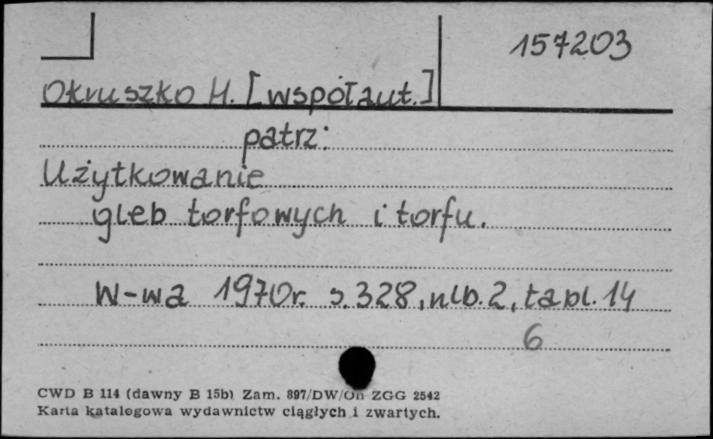 157203
Okruszko H. [współaut.]
patrz:
Użytkowanie
gleb torfowych i torfu.
W-wa 1970r. s. 328, nlb. 2, tabl. 14
6
CWD B 114 (dawny B 15b) Zam. 897/DW/On ZGG 2542
Karta katalogowa wydawnictw ciągłych i zwartych.